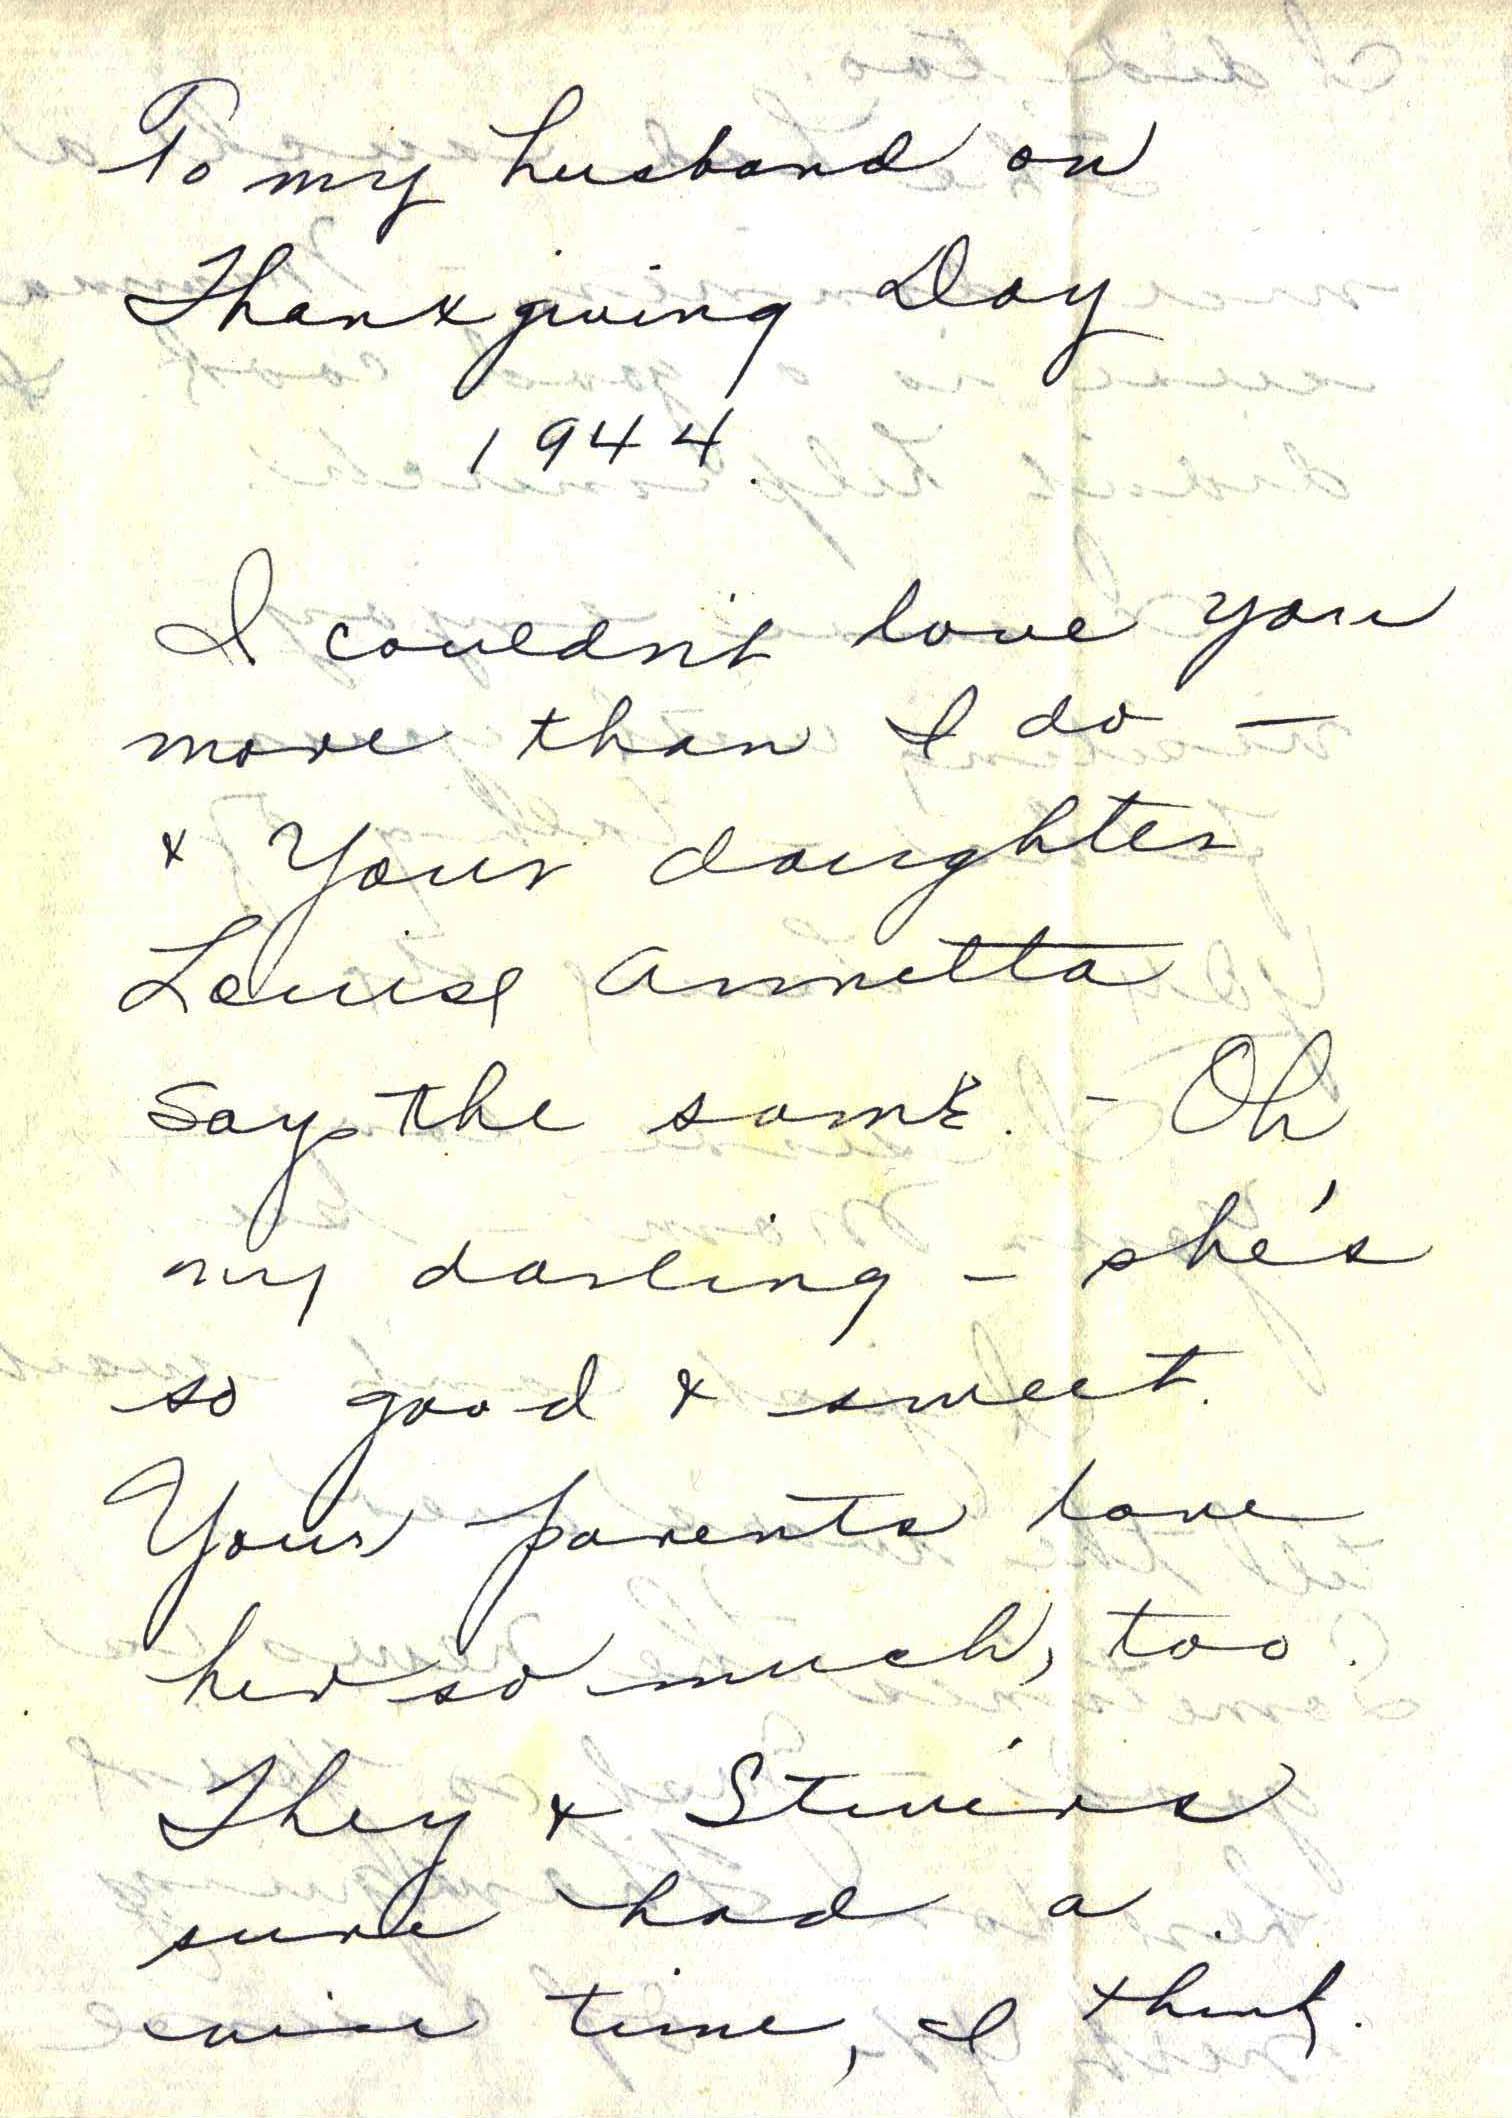 To my husband on
Thanksgiving Day
1944.
I couldn't love you
more than I do —
& Your daughter
Louise Annetta
says the same. - Oh
my darling - she's
so good & sweet.
Your parents love
her so much, too.
They & Stivers
sure had a
nice time, I think.